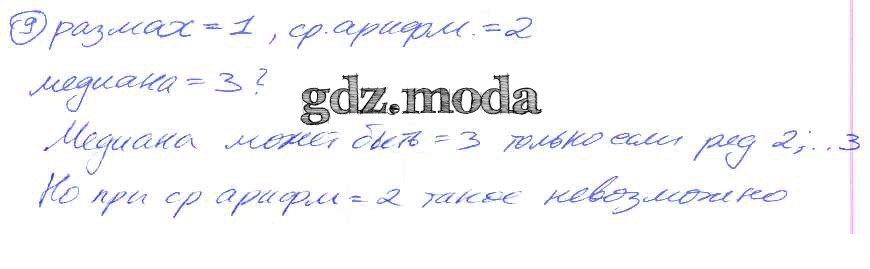 9) размах = 1, ср. арифм. = 2
медиана = 3?
gdz.moda
Медиана может быть = 3 только если ряд 2; .. 3
Но при ср арифм = 2 такое невозможно